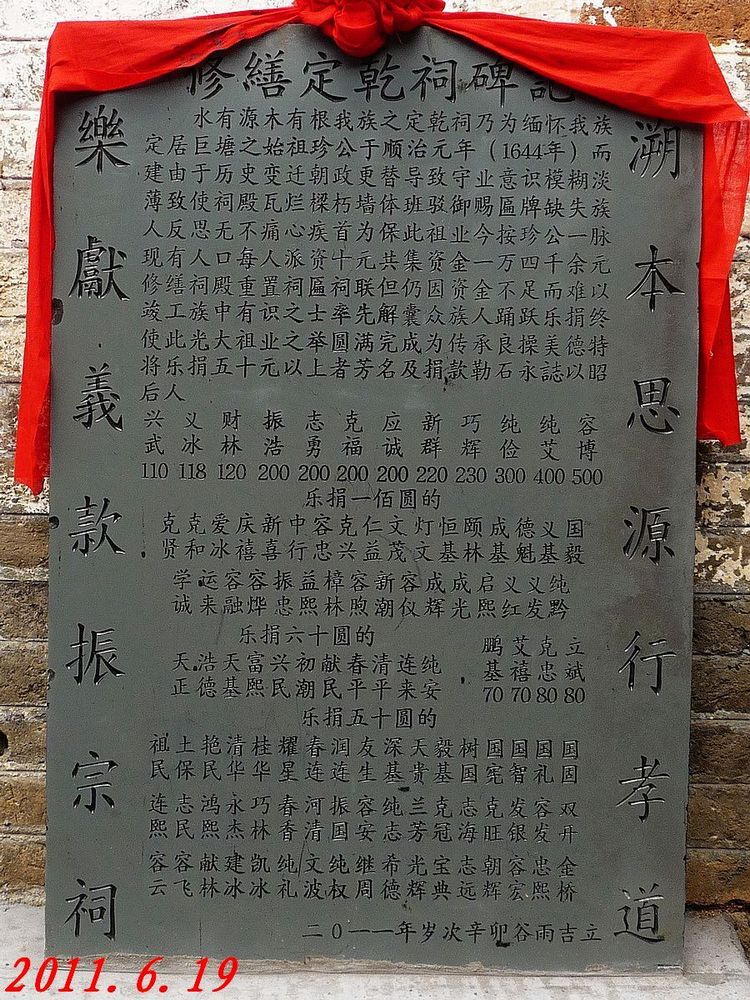 修繕定乾祠碑記
溯本思源行孝道
水有源木有根我族之定乾祠乃为缅怀我族
定居巨塘之始祖珍公于顺治元年(1644年)而
建由于历史变迁朝政更替导致守业意识模糊淡
薄致使祠殿瓦烂樑朽墙体班驳御赐匾牌缺失族
人反思无不痛心疾首为保此祖业今按珍公一脉
现有人口每人派资十元共集资金一万四千余元
修缮祠殿重置祠匾祠联但仍因资金不足而难以
竣工族中有识之士率先解囊众族人踊跃乐捐终
使此光大祖业之举圆满完成为传承良操美德特
将乐捐五十元以上者芳名及捐款勒石永誌以昭
后人
兴 义 财 振 志 克 应 新 巧 纯 纯 容
武 冰 林 浩 勇 福 诚 群 辉 俭 艾 博
110 118 120 200 200 200 200 220 230 300 400 500
乐捐一佰圆的
克克爱庆新中容克仁文灯恒颐成德义国
贤和冰禧喜行忠兴益茂文基林基魁基毅
学运容容振益樟容新容成成启义义纯
诚来融烨忠熙林煦潮仪辉光熙红发黔
乐捐六十圆的
天浩天富兴初献春清连纯
正德基熙民潮民平平来安
鹏艾克立
基禧忠斌
70 70 80 80
乐捐五十圆的
祖土艳清桂耀春润友深天毅树国国国国
民保民华华星连连生基贵基国宪智礼固
连志鸿永巧春河振容纯兰克志克发容双
熙民熙杰林香清国安志芳冠海旺银发开
容容献建凯纯文纯继希光宝志朝容忠金
云飞林冰冰礼波权周德辉典远辉宏熙桥
二0一一年岁次辛卯谷雨吉立
樂獻義款振宗祠
2011.6.19